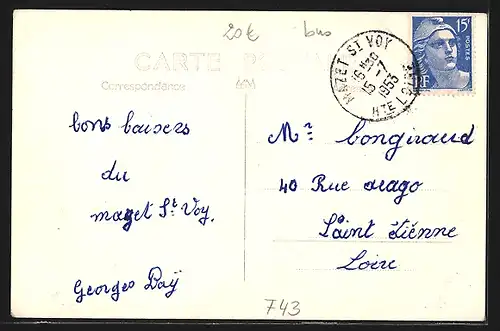 20€ bus
CARTE P
Correspondance
MAZET ST VOY
15H30
15-7
1953
HTE LOIRE
15F
POSTES
RF
bons baisers
du
mazet St. Voy.
Georges Daÿ
Mr. Longiraud
40 Rue arago
Saint Étienne
Loire
F43